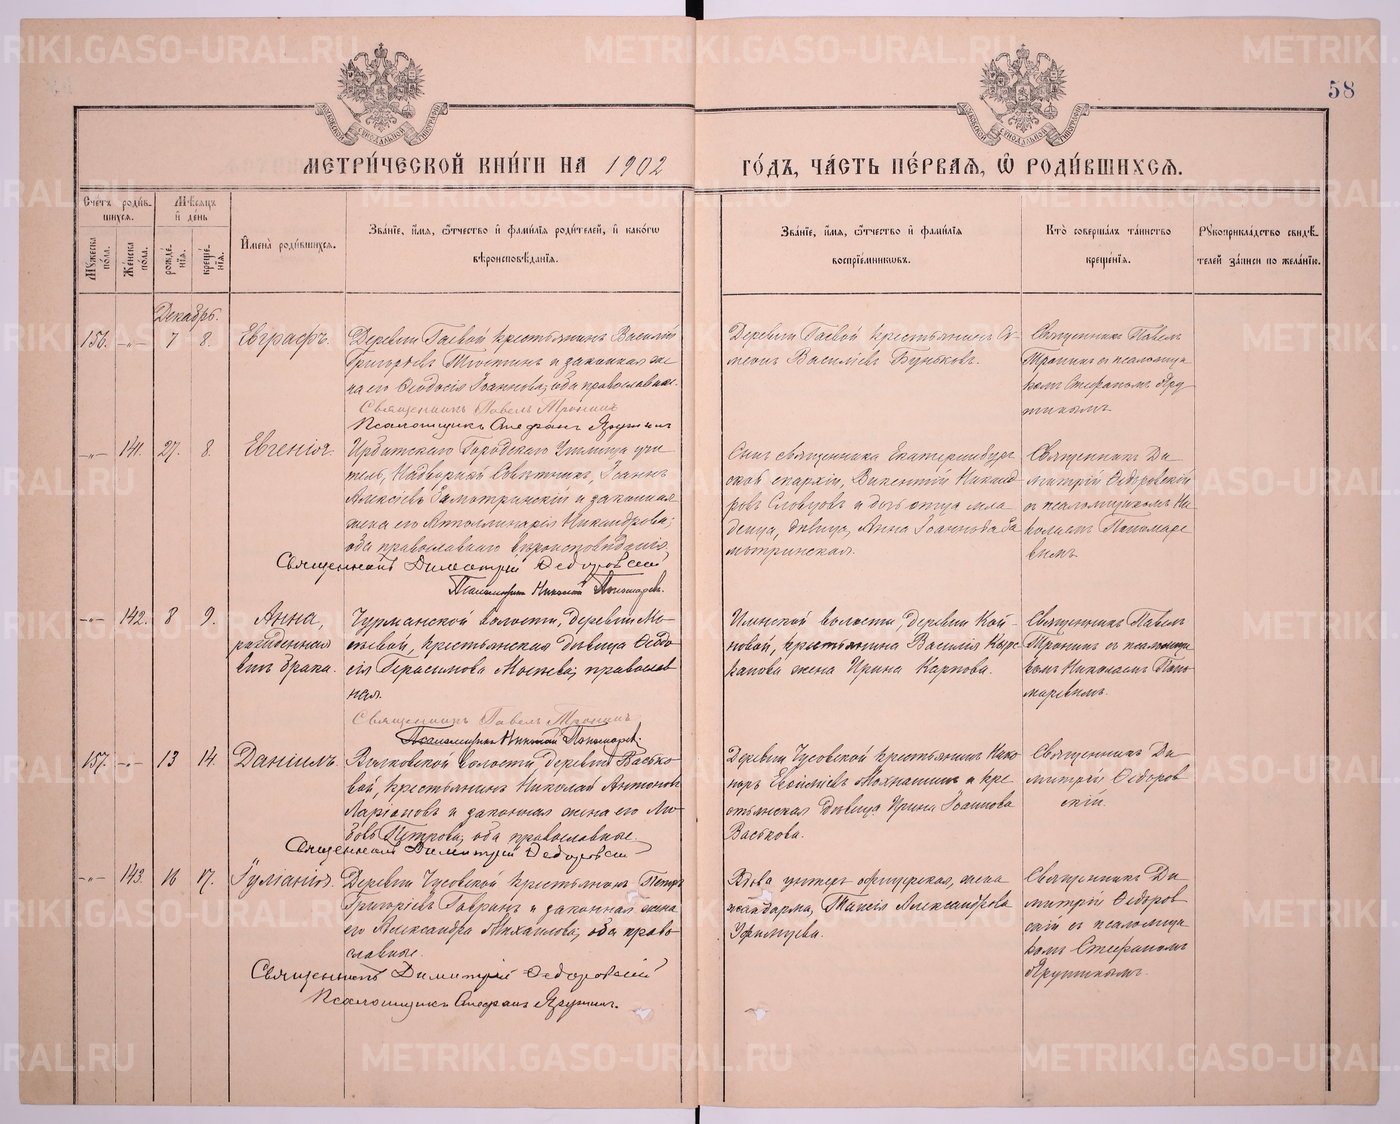 58
МЕТРИ́ЧЕСКОЙ КНИ́ГИ НА 1902 ГО́ДЪ, ЧА́СТЬ ПЕ́РВАЯ, Ѡ҆ РОДИ́ВШИХСЯ.
Сче́тъ роди́в-
шихся.
Мужеска по́ла.
Же́нска по́ла.
Мѣ́сяцъ и҆ де́нь
рожде́-
нїя.
креще́-
нїя.
И҆мена̀ роди́вшихся.
Зва́нїе, и҆́мя, ѻ҆́тчество и҆ фами́лїя роди́телей, и҆ како́гѡ
вѣроисповѣ́данїя.
Зва́нїе, и҆́мя, ѻ҆́тчество и҆ фами́лїя
воспрїе́мникѡвъ.
Кто̀ соверша́лъ та́инство
креще́нїя.
Рукоприкла́дство свидѣ́-
телей за́писи по жела́нїю.
Декабрь.
156. -„- 7 8. Евграфъ.
Деревни Гаевой крестьянинъ Василій
Григорьевъ и законная же-
на его Ѳеодосія Іоаннова; оба православные.
Священникъ Павелъ Тронинъ
Псаломщикъ Стефанъ Ярутинъ
Деревни Гаевой крестьянинъ Си-
меонъ Василіевъ Буньковъ.
Священникъ Павелъ
Тронинъ съ псаломщи-
комъ Стефаномъ Яру-
тинымъ
-„- 141. 27. 8. Евгенія.
Ирбитскаго Городскаго Училища учи-
тель, Надворный Совѣтникъ, Іоаннъ
Алексіевъ Заматринскій и законная
жена его Апполинарія Никандрова;
оба православнаго вѣроисповѣданія
Священникъ Димитрій Ѳедоровскій
Псаломщикъ Николай Пономаревъ.
Сынъ священника Екатеринбург-
ской епархіи, Викентій Никанд-
ровъ Словцовъ и дочь отца мла-
денца, дѣвица, Анна Іоаннова За-
матринская.
Священникъ Ди-
митрій Ѳедоровскій
съ псаломщикомъ Ни-
колаемъ Пономаре-
вымъ.
-„- 142. 8 9. Анна,
рожденная
внѣ брака.
Чурманской волости, деревни Мо-
тевой, крестьянская дѣвица Ѳеодо-
сія Герасимова Мотева; православ-
ная.
Священникъ Павелъ Тронинъ
Псаломщикъ Николай Пономаревъ.
волости деревни
крестьянина Василія
жена Ирина Карпова.
Священникъ Павелъ
Тронинъ съ псаломщи-
комъ Николаемъ Поно-
маревымъ.
157. -„- 13 14. Даніилъ.
волости деревни Васько-
вой, крестьянинъ Николай Антоновъ
Ларіоновъ и законная жена его Лю-
бовь Петрова; оба православные.
Священникъ Димитрій Ѳедоровскій
Деревни Чусовской крестьянинъ Ника-
норъ и кре-
стьянская дѣвица Ирина Іоаннова
Васькова.
Священникъ Ди-
митрій Ѳедоров-
скій.
-„- 143. 16 17. Іуліанія.
Деревни Чусовской крестьянинъ Петръ
Григоріевъ и законная жена
его Александра Михаилова; оба право-
славные.
Священникъ Димитрій Ѳедоровскій
Псаломщикъ Стефанъ Ярутинъ.
Вдова унтеръ офицерская, жена
жандарма, Таисія Александрова
Священникъ Ди-
митрій Ѳедоров-
скій съ псаломщи-
комъ Стефаномъ
Ярутинымъ.
METRIKI.GASO-URAL.RU